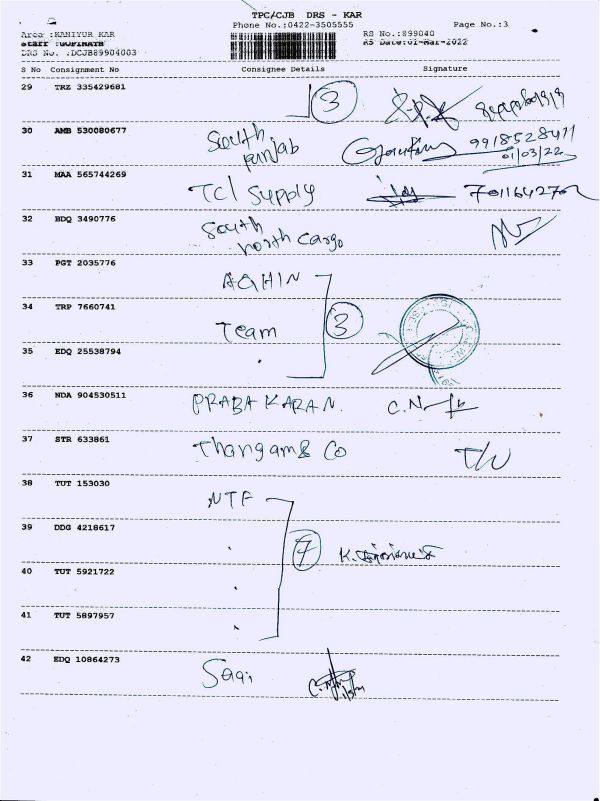 TPC/CJB DRS - KAR
Phone No.:0422-3505555 Page No.:3
Area :KANIYUR KAR RS No.:899040
Staff :GOPINATH RS Date:01-Mar-2022
DRS No. :DCJB89904003
S No Consignment No Consignee Details Signature
29 TRZ 335429681 3
30 AMB 530080677 South Punjab 9918528411
01/03/22
31 MAA 565744269 TCI Supply 7011642702
32 BDQ 3490776 South
North Cargo
33 PGT 2035776 AGHIN
34 TRP 7660741 Team 3
35 EDQ 25538794
36 NDA 904530511 PRABAKARAN.
37 STR 633861 Thangam & Co
38 TUT 153030 NTF
39 DDG 4218617 7
40 TUT 5921722
41 TUT 5897957
42 EDQ 10864273